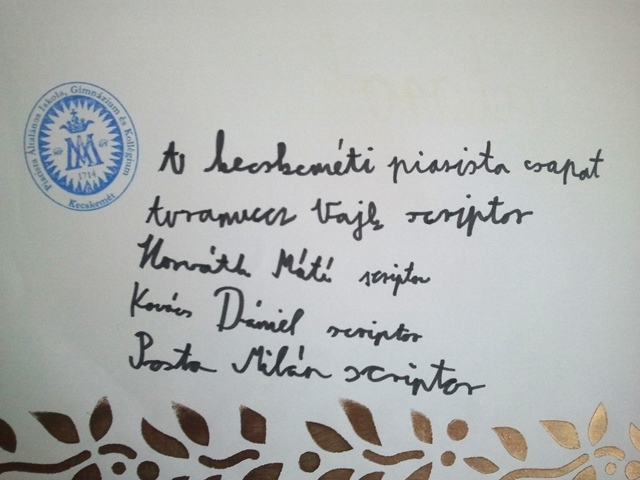 Piarista Általános Iskola, Gimnázium és Kollégium
1714
Kecskemét
A kecskeméti piarista csapat
Vajk scriptor
Horváth Máté scriptor
Kovács Dániel scriptor
Posta Milán scriptor